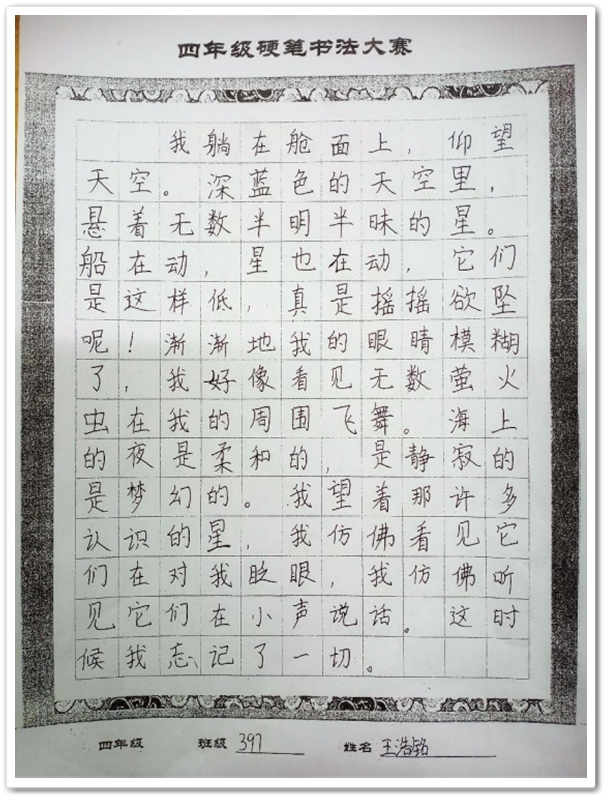 四年级硬笔书法大赛
我躺在舱面上，仰望
天空。深蓝色的天空里，
悬着无数半明半昧的星。
船在动，星也在动，它们
是这样低，真是摇摇欲坠
呢！渐渐地我的眼睛模糊
了，我好像看见无数萤火
虫在我的周围飞舞。海上
的夜是柔和的，是静寂的
是梦幻的。我望着那许多
认识的星，我仿佛看见它
们在对我眨眼，我仿佛听
见它们在小声说话。这时
候我忘记了一切。
四年级 班级 397 姓名 王浩铭